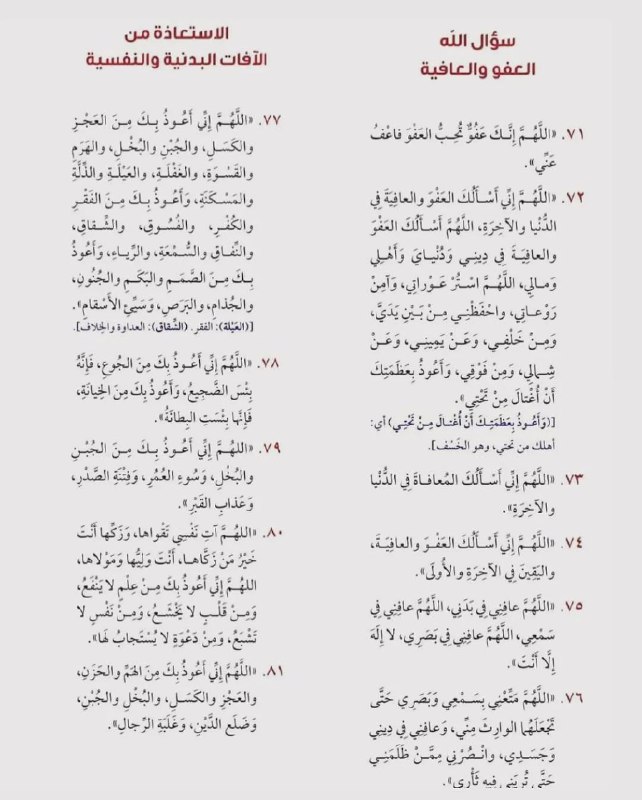 سؤال الله
العفو والعافية
٧١. «اللَّهُمَّ إِنَّكَ عَفُوٌّ تُحِبُّ العَفْوَ فاعْفُ
عَنِّي».
٧٢. «اللَّهُمَّ إِنِّي أَسْأَلُكَ العَفْوَ والعافِيَةَ فِي
الدُّنْيا والآخِرَةِ، اللَّهُمَّ أَسْأَلُكَ العَفْوَ
والعافِيَةَ فِي دِينِي وَدُنْيايَ وَأَهْلِي
وَمالِي، اللَّهُمَّ اسْتُرْ عَوْراتِي، وَآمِنْ
رَوْعاتِي، واحْفَظْنِي مِنْ بَيْنِ يَدَيَّ،
وَمِنْ خَلْفِي، وَعَنْ يَمِينِي، وَعَنْ
شِمالِي، وَمِنْ فَوْقِي، وَأَعُوذُ بِعَظَمَتِكَ
أَنْ أُغْتالَ مِنْ تَحْتِي».
[(وَأَعُوذُ بِعَظَمَتِكَ أَنْ أُغْتالَ مِنْ تَحْتِي) أي:
أهلك من تحتي، وهو الخَسْف].
٧٣. «اللَّهُمَّ إِنِّي أَسْأَلُكَ المُعافاةَ فِي الدُّنْيا
والآخِرَةِ».
٧٤. «اللَّهُمَّ إِنِّي أَسْأَلُكَ العَفْوَ والعافِيَةَ،
واليَقِينَ فِي الآخِرَةِ والأُولَى».
٧٥. «اللَّهُمَّ عافِنِي فِي بَدَنِي، اللَّهُمَّ عافِنِي فِي
سَمْعِي، اللَّهُمَّ عافِنِي فِي بَصَرِي، لا إِلَهَ
إِلَّا أَنْتَ».
٧٦. «اللَّهُمَّ مَتِّعْنِي بِسَمْعِي وَبَصَرِي حَتَّى
تَجْعَلَهُما الوارِثَ مِنِّي، وَعافِنِي فِي دِينِي
وَجَسَدِي، وانْصُرْنِي مِمَّنْ ظَلَمَنِي
حَتَّى تُرِيَنِي فِيهِ ثَأْرِي».
الاستعاذة من
الآفات البدنية والنفسية
٧٧. «اللَّهُمَّ إِنِّي أَعُوذُ بِكَ مِنَ العَجْزِ
والكَسَلِ، والجُبْنِ والبُخْلِ، والهَرَمِ
والقَسْوَةِ، والغَفْلَةِ، والعَيْلَةِ والذِّلَّةِ
والمَسْكَنَةِ، وَأَعُوذُ بِكَ مِنَ الفَقْرِ
والكُفْرِ، والفُسُوقِ، والشِّقاقِ،
والنِّفاقِ والسُّمْعَةِ، والرِّياءِ، وَأَعُوذُ
بِكَ مِنَ الصَّمَمِ والبَكَمِ والجُنُونِ،
والجُذامِ، والبَرَصِ، وَسَيِّئِ الأَسْقامِ».
[(العَيْلة): الفقر. (الشِّقاق): العداوة والخِلاف].
٧٨. «اللَّهُمَّ إِنِّي أَعُوذُ بِكَ مِنَ الجُوعِ، فَإِنَّهُ
بِئْسَ الضَّجِيعُ، وَأَعُوذُ بِكَ مِنَ الخِيانَةِ،
فَإِنَّها بِئْسَتِ البِطانَةُ».
٧٩. «اللَّهُمَّ إِنِّي أَعُوذُ بِكَ مِنَ الجُبْنِ
والبُخْلِ، وَسُوءِ العُمُرِ، وَفِتْنَةِ الصَّدْرِ،
وَعَذابِ القَبْرِ».
٨٠. «اللهُمَّ آتِ نَفْسِي تَقْواها، وَزَكِّها أَنْتَ
خَيْرُ مَنْ زَكَّاها، أَنْتَ وَلِيُّها وَمَوْلاها،
اللهُمَّ إِنِّي أَعُوذُ بِكَ مِنْ عِلْمٍ لا يَنْفَعُ،
وَمِنْ قَلْبٍ لا يَخْشَعُ، وَمِنْ نَفْسٍ لا
تَشْبَعُ، وَمِنْ دَعْوَةٍ لا يُسْتَجابُ لَها».
٨١. «اللَّهُمَّ إِنِّي أَعُوذُ بِكَ مِنَ الهَمِّ والحَزَنِ،
والعَجْزِ والكَسَلِ، والبُخْلِ والجُبْنِ،
وَضَلَعِ الدَّيْنِ، وَغَلَبَةِ الرِّجالِ».